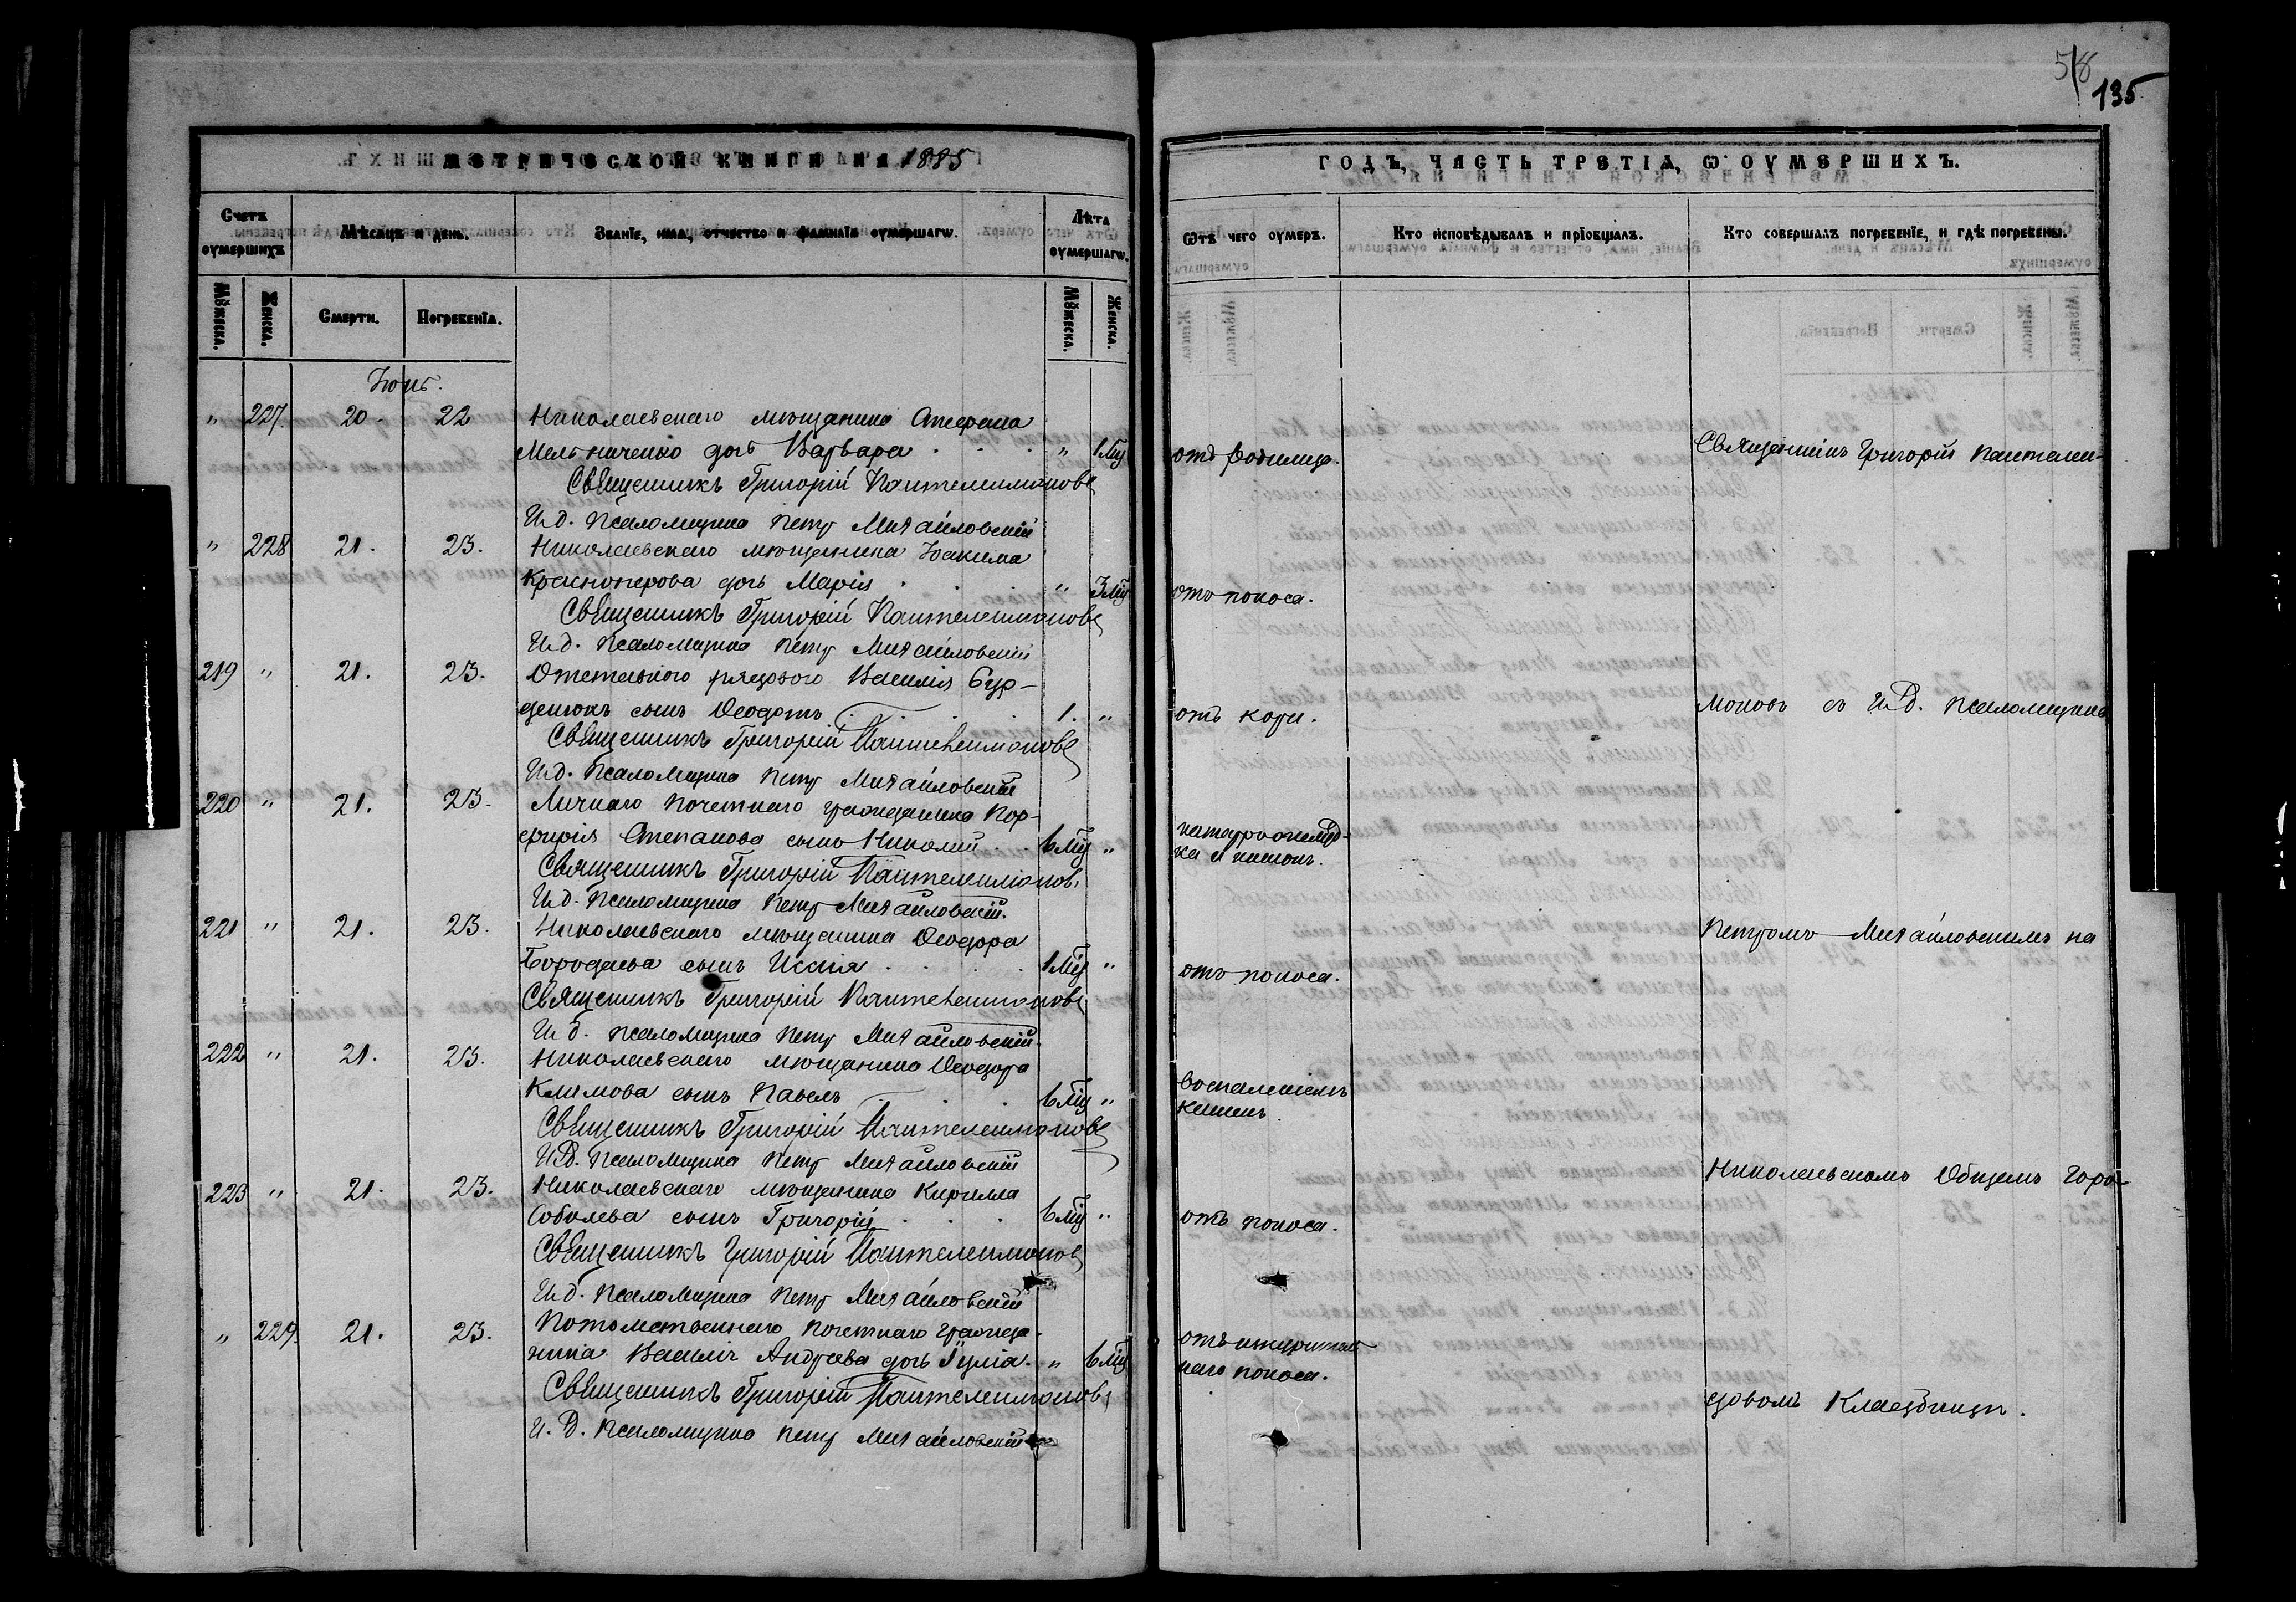 58
135
МЕТРИЧЕСКОЙ КНИГИ НА 1885
ГОДЪ, ЧАСТЬ ТРЕТІА, Ѡ ОУМЕРШИХЪ.
Счетъ оумершихъ
Мѣсяцъ и день.
Званіе, имя, отчество и фамиліа оумершагѡ.
Лѣта оумершагѡ.
Ѿтъ чего оумеръ.
Кто исповѣдывалъ и пріобщалъ.
Кто совершалъ погребеніе, и гдѣ погребены.
Мꙋжеска.
Женска.
Смерти.
Погребеніа.
Мꙋжеска.
Женска.
Іюнь.
" 227. 20. 22 Николаевскаго мѣщанина Стефана
Мельниченко дочь Варвара . . . " 1 мц отъ родимца. Священникъ Григорій Пантелеи-
Священникъ Григорій Пантелеимоновъ
И.д. Псаломщика Петръ Михайловскій
" 228 21. 23. Николаевскаго мѣщанина Іоакима
Красноперова дочь Марія . . . " 3 мц отъ поноса.
Священникъ Григорій Пантелеимоновъ
И.д. Псаломщика Петръ Михайловскій
219 " 21. 23. Отставнаго рядового Василія Бур-
денюкъ сынъ Ѳеодотъ . . . 1. " отъ кори. моновъ съ И.д. Псаломщика
Священникъ Григорій Пантелеимоновъ
И.д. Псаломщика Петръ Михайловскій
220 " 21. 23. Личнаго почетнаго гражданина Пор-
фирія Степанова сынъ Николай . . 6 мц " катарро желуд-
ка и кишокъ.
Священникъ Григорій Пантелеимоновъ
И.д. Псаломщика Петръ Михайловскій.
221 " 21. 23. Николаевскаго мѣщанина Ѳеодора Петромъ Михайловскимъ на
Бородаева сынъ Исаія . . . . 1 мц " отъ поноса.
Священникъ Григорій Пантелеимоновъ
И.д. Псаломщика Петръ Михайловскій.
222 " 21. 23. Николаевскаго мѣщанина Ѳеодора
Климова сынъ Павелъ . . . 6 мц " воспаленіемъ
кишекъ.
Священникъ Григорій Пантелеимоновъ
И.д. Псаломщика Петръ Михайловскій
223 " 21. 23. Николаевскаго мѣщанина Кирилла Николаевскомъ Общемъ Горо-
Соболева сынъ Григорій . . . 6 мц " отъ поноса.
Священникъ Григорій Пантелеимоновъ
И.д. Псаломщика Петръ Михайловскій
" 229. 21. 23. Потомственнаго почетнаго гражда-
нина Василія Андреева дочь Іулія. " 6 мц отъ
наго поноса.
Священникъ Григорій Пантелеимоновъ
довомъ Кладбищѣ.
И.д. Псаломщика Петръ Михайловскій